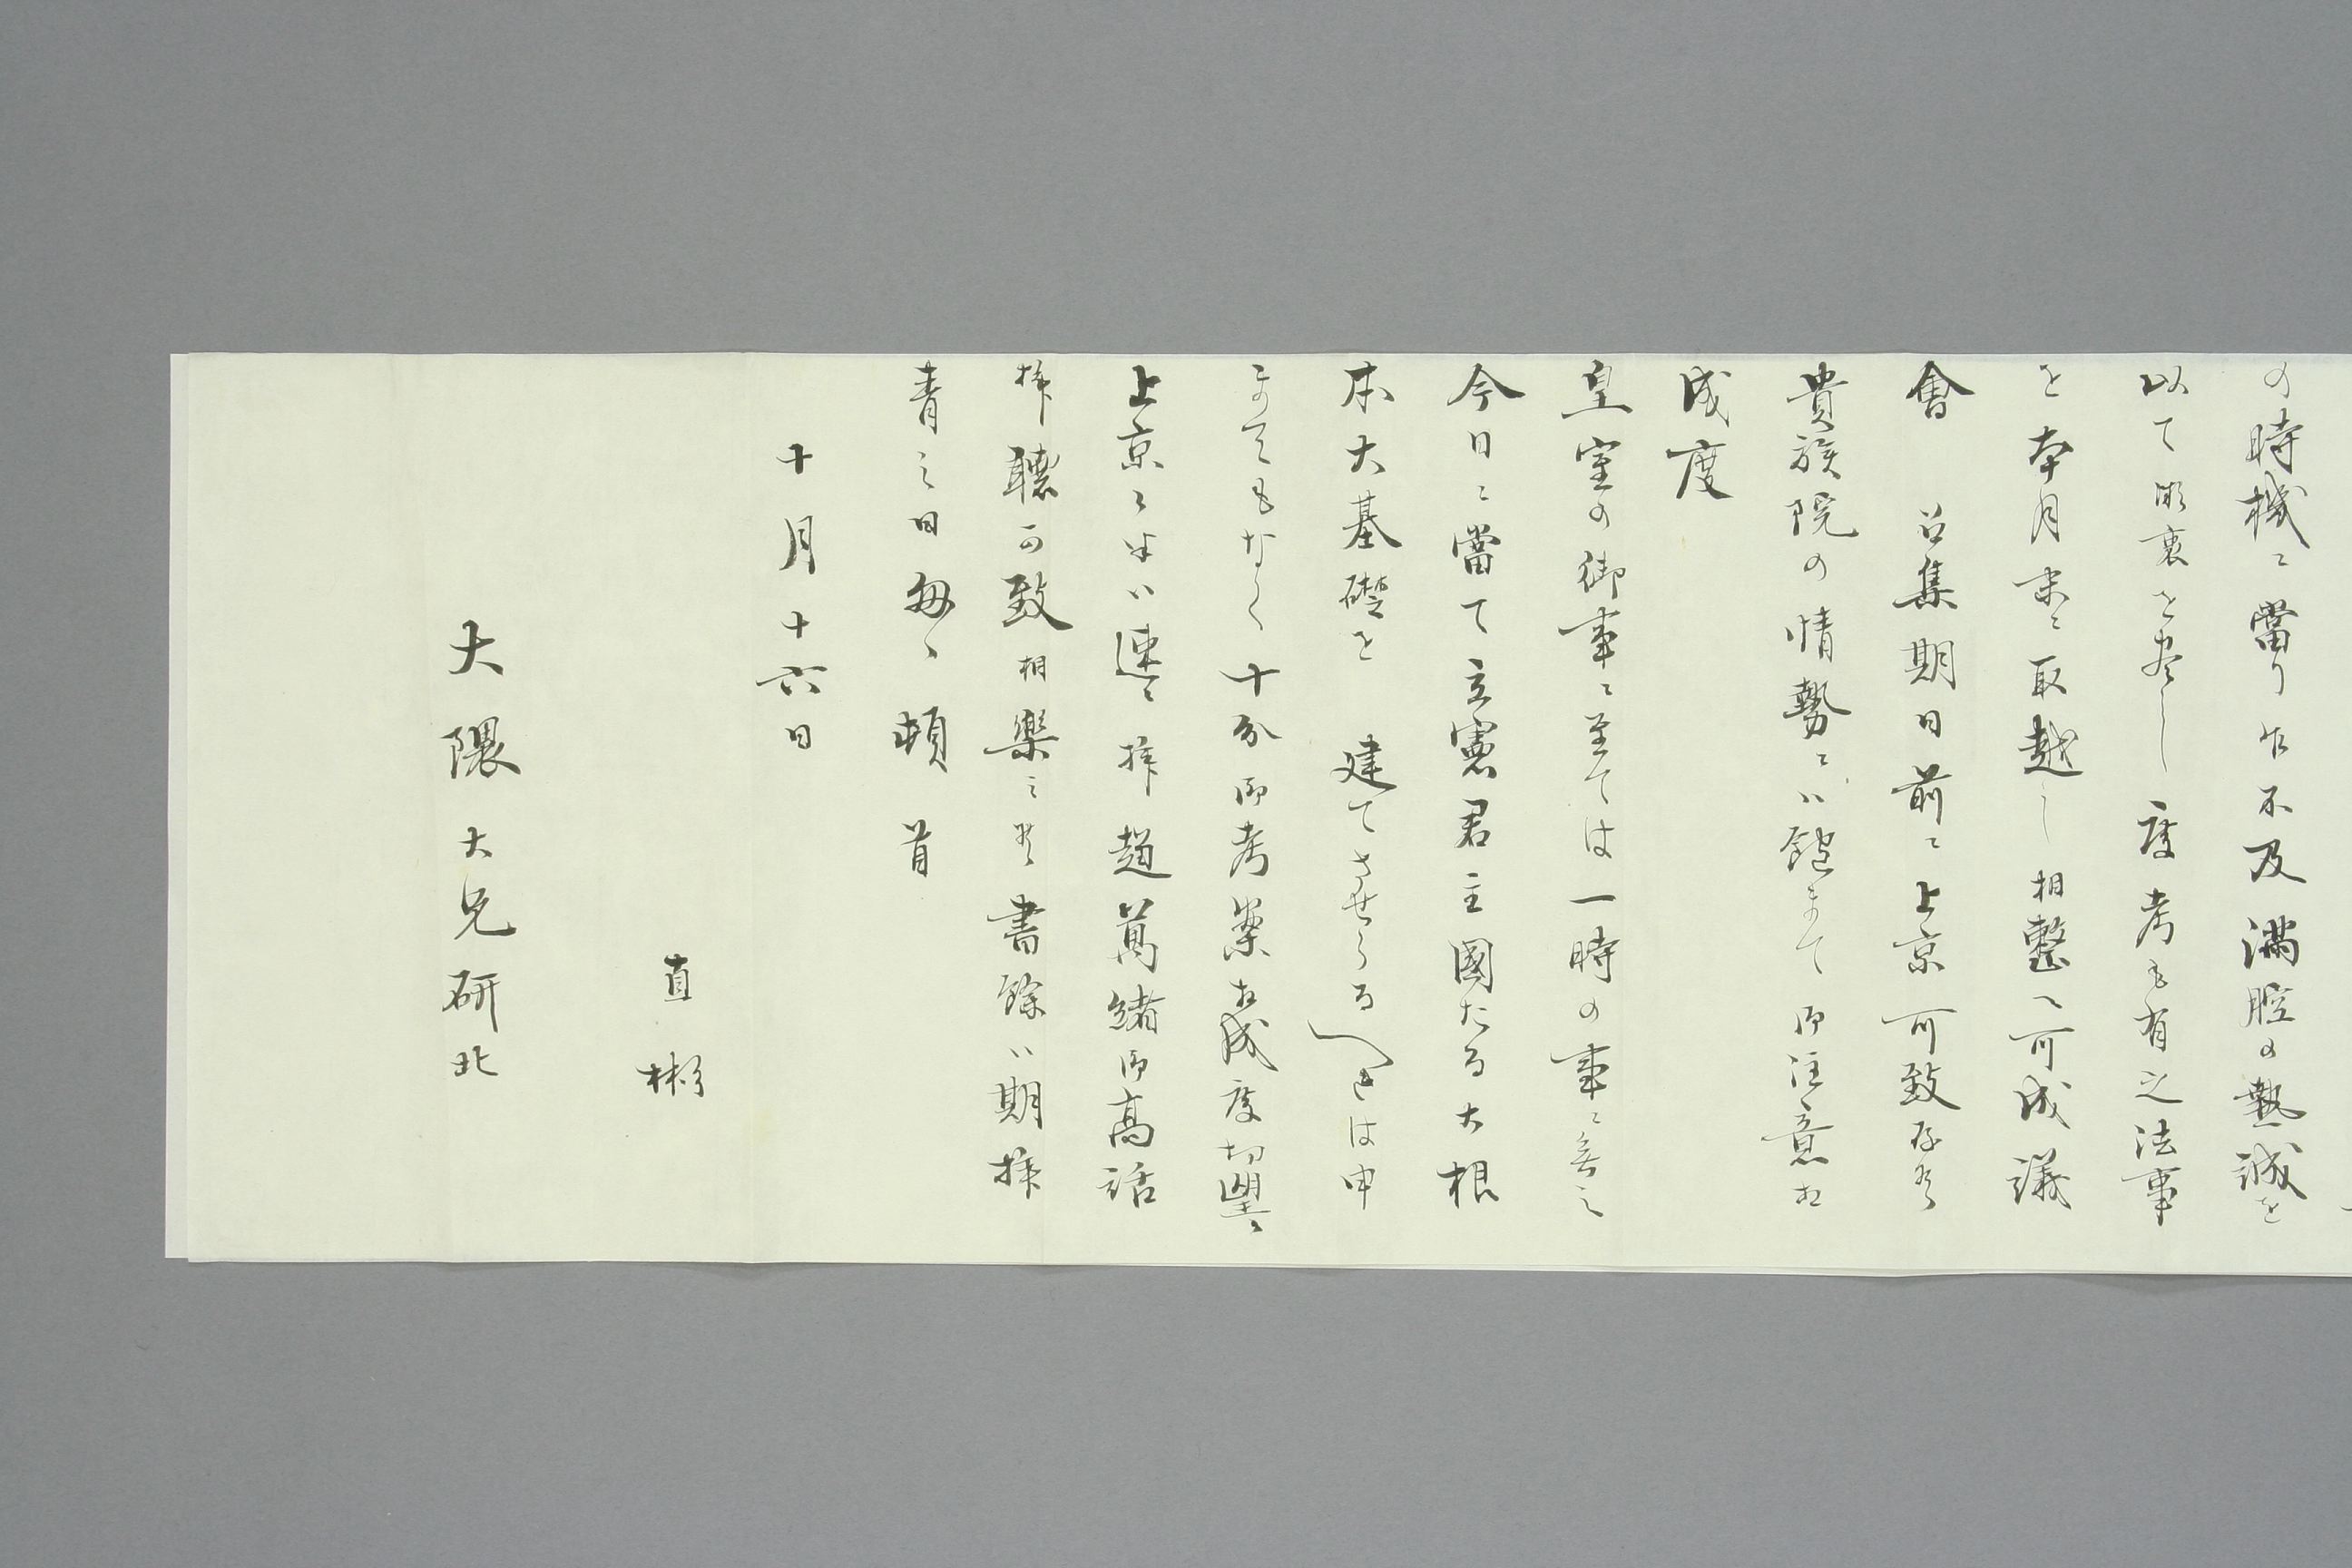 の時機ニ當り乍不及満腔の熱誠を
以て微衷を尽し度考も有之法事
を本月末ニ取越し相整へ可成議
會召集期日前ニ上京可致存候
貴族院の情勢ニハ飽まて御注意相
成度
皇室の御事ニ至ては一時の事ニ無之
今日ニ當て立憲君主國たる大根
本大基礎を建てさせらるへきは申
まてもなく十分御考案相成度切望々
上京候はゝ速ニ拝趨萬緒御高話
拝聴可致相樂ミ候書餘ハ期拝
青之日匆々頓首
十月十六日
直彬
大隈大兄研北